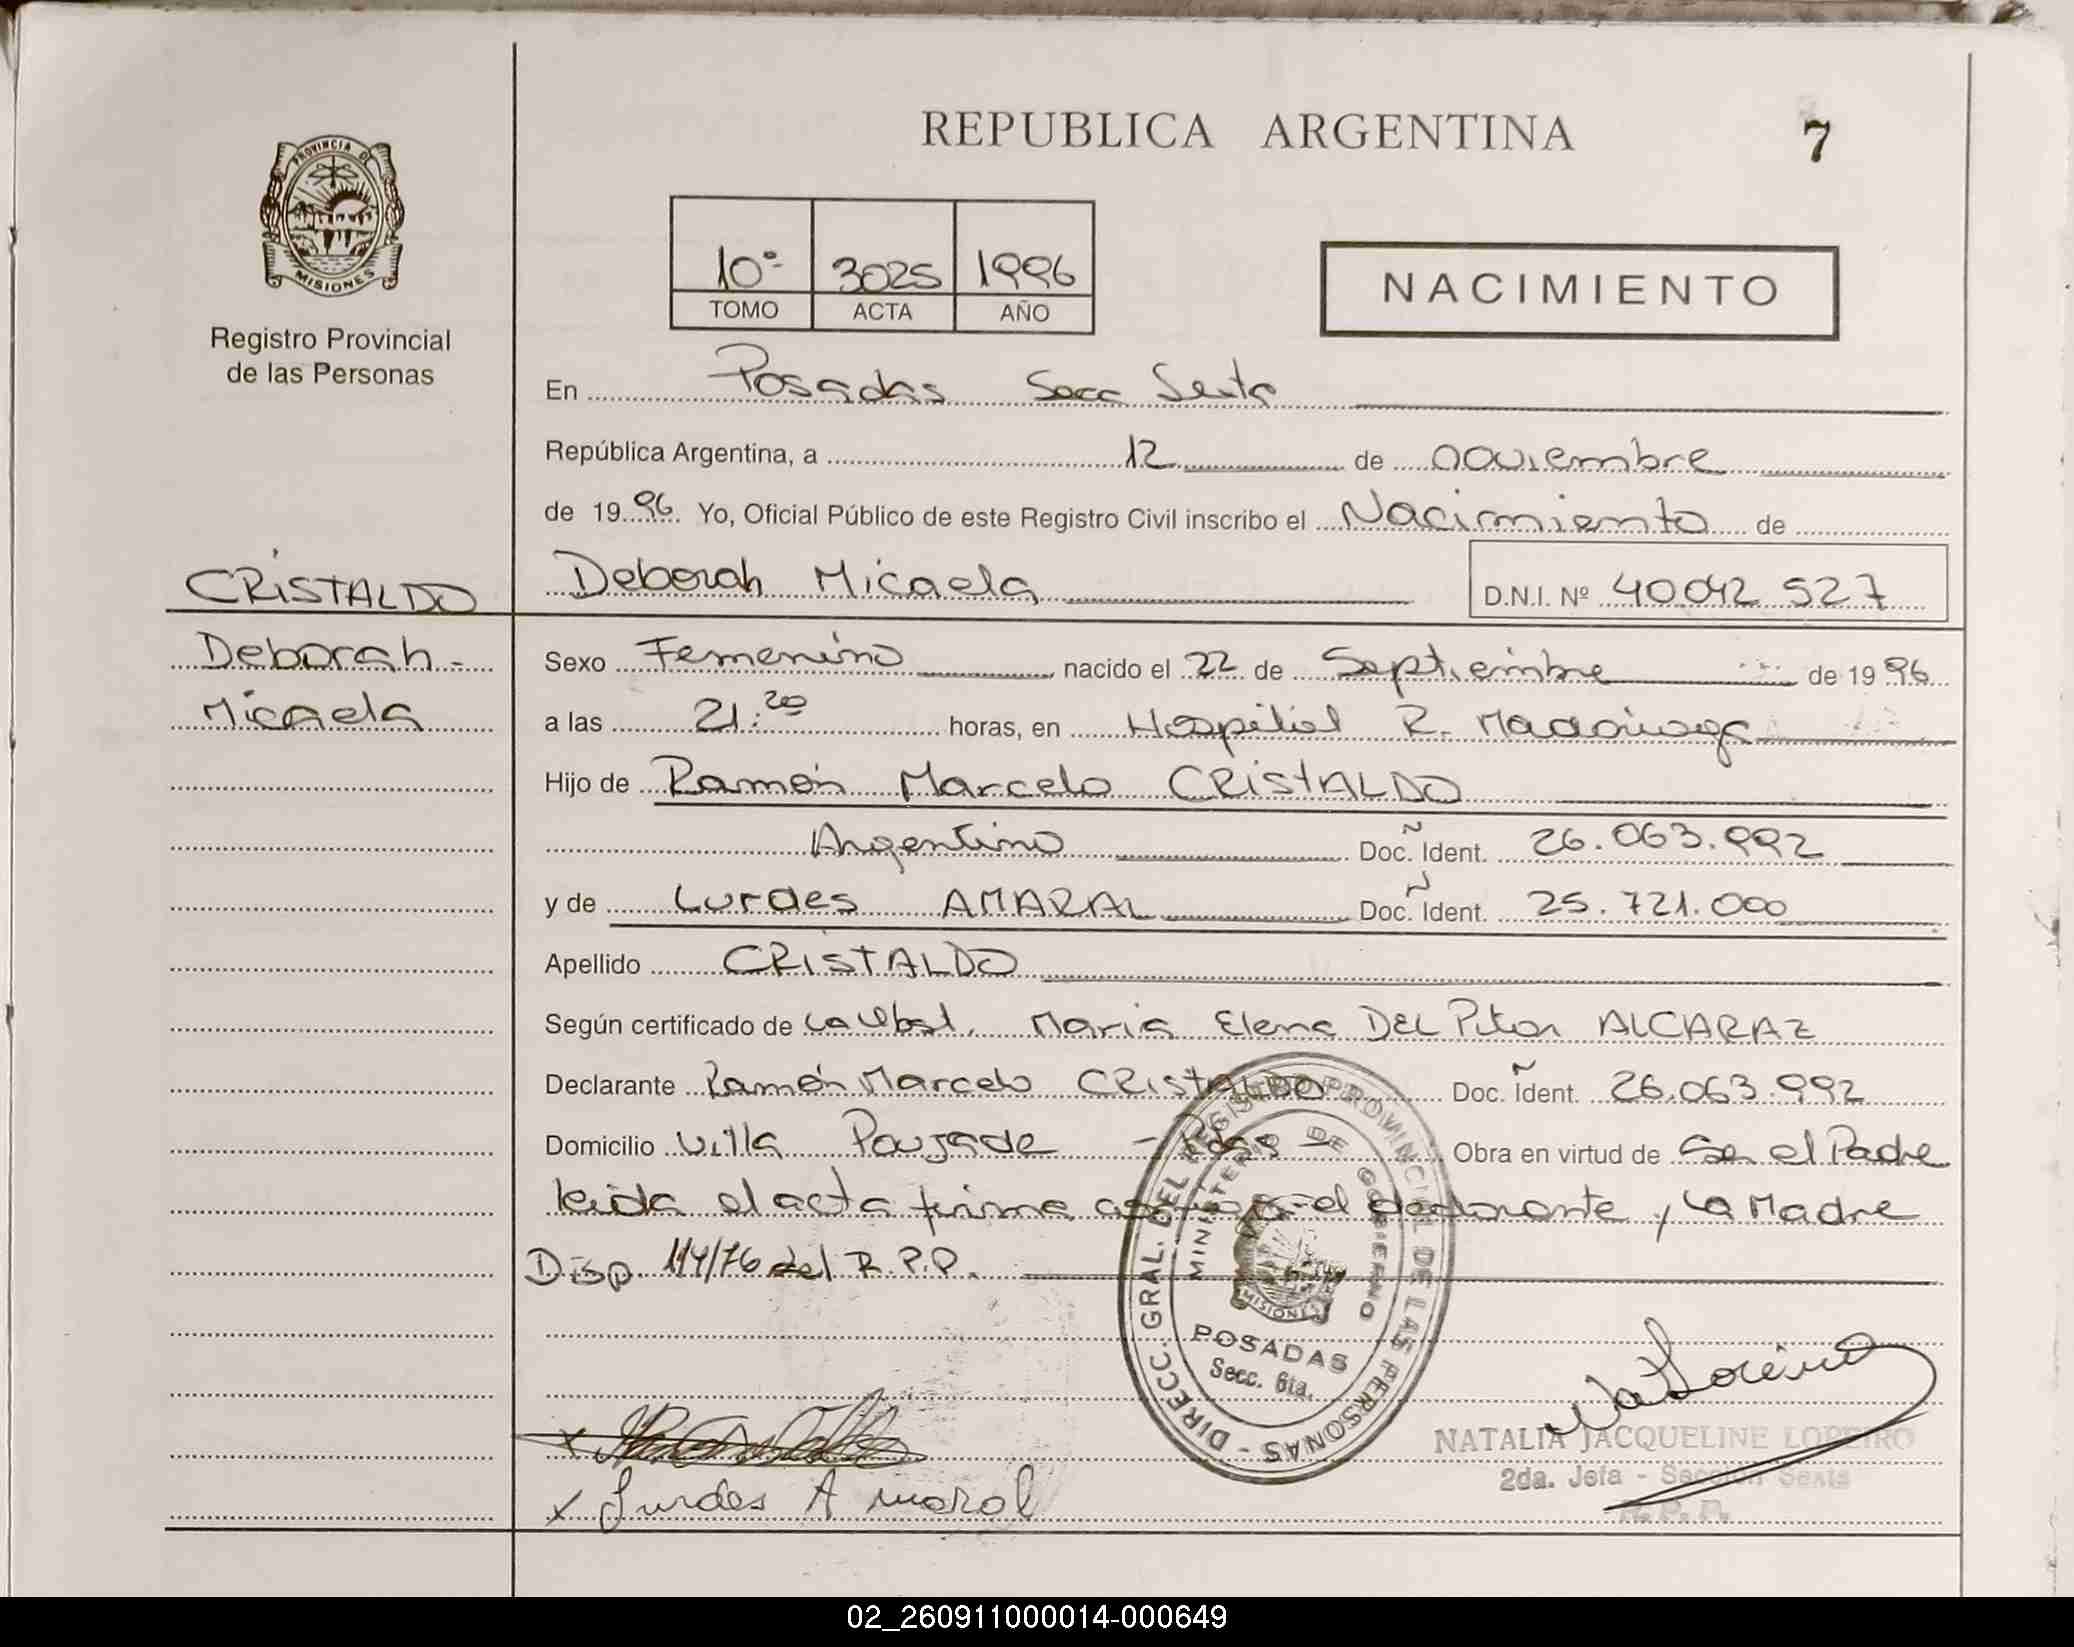 REPUBLICA ARGENTINA
7
PROVINCIA DE
MISIONES
Registro Provincial
de las Personas
10º 3025 1996
TOMO ACTA AÑO
NACIMIENTO
En Posadas Secc Sexta
República Argentina, a 12 de noviembre
de 1996 Yo, Oficial Público de este Registro Civil inscribo el Nacimiento de
CRISTALDO
Deborah Micaela
D.N.I. Nº 40.042.527
Deborah
Micaela
Sexo Femenino nacido el 22 de Septiembre de 1996
a las 21:20 horas, en Hospital R. Madariaga
Hijo de Ramón Marcelo CRISTALDO
Argentino Doc. Ident. 26.063.992
y de Lurdes AMARAL Doc. Ident. 25.721.000
Apellido CRISTALDO
Según certificado de La Obst. Maria Elena DEL Pilar ALCARAZ
Declarante Ramón Marcelo CRISTALDO Doc. Ident. 26.063.992
Domicilio Villa Poujade - Pdas - Obra en virtud de Ser el Padre
leida el acta firma el declarante y La Madre
Disp. 114/76 del R.P.P.
DIRECC. GRAL. DEL REGISTRO PROVINCIAL DE LAS PERSONAS
MINISTERIO DE GOBIERNO
MISIONES
POSADAS
Secc. 6ta.
NATALIA JACQUELINE LOREIRO
2da. Jefa - Sección Sexta
R. P. P.
x
x Lurdes Amaral
02_260911000014-000649